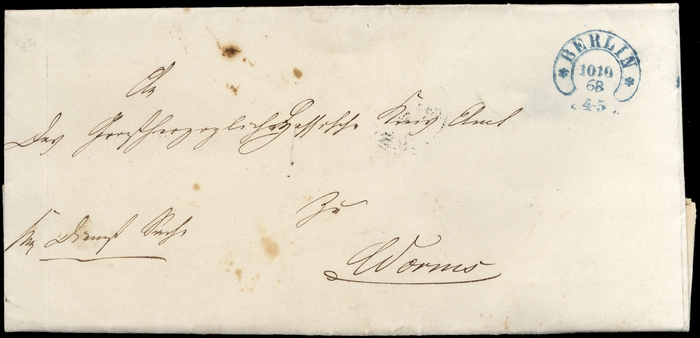 * BERLIN *
10 10
68
4-5
An
Das Großherzoglich Hessische Kreis Amt
Dienst Sache
Zu
Worms